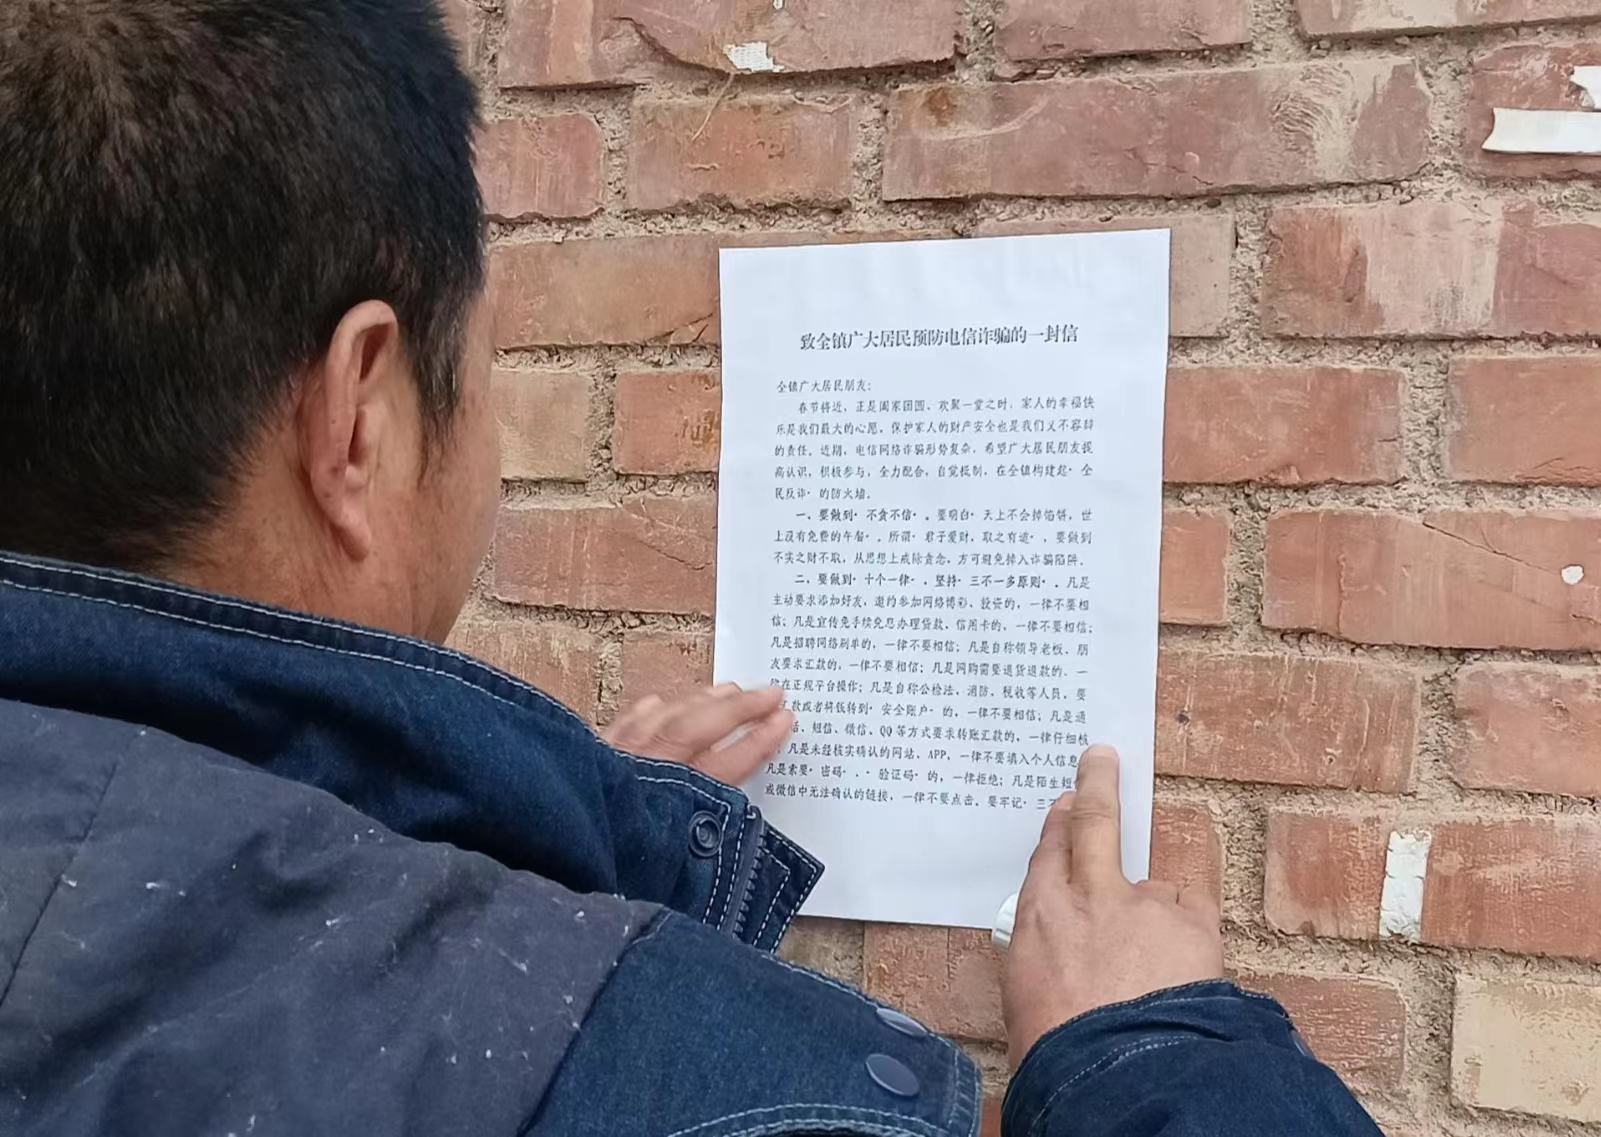 致全镇广大居民预防电信诈骗的一封信
全镇广大居民朋友：
春节将近，正是阖家团圆、欢聚一堂之时，家人的幸福快
乐是我们最大的心愿，保护家人的财产安全也是我们义不容辞
的责任。近期，电信网络诈骗形势复杂，希望广大居民朋友提
高认识，积极参与，全力配合，自觉抵制，在全镇构建起"全
民反诈"的防火墙。
一、要做到"不贪不信"。要明白"天上不会掉馅饼，世
上没有免费的午餐"。所谓"君子爱财，取之有道"，要做到
不实之财不取，从思想上戒除贪念，方可避免掉入诈骗陷阱。
二、要做到"十个一律"，坚持"三不一多原则"。凡是
主动要求添加好友，邀约参加网络博彩、投资的，一律不要相
信；凡是宣传免手续免息办理贷款、信用卡的，一律不要相信；
凡是招聘网络刷单的，一律不要相信；凡是自称领导老板、朋
友要求汇款的，一律不要相信；凡是网购需要退货退款的，一
律在正规平台操作；凡是自称公检法、消防、税收等人员，要
汇款或者将钱转到"安全账户"的，一律不要相信；凡是通
话、短信、微信、QQ等方式要求转账汇款的，一律仔细核
；凡是未经核实确认的网站、APP，一律不要填入个人信息
凡是索要"密码"、"验证码"的，一律拒绝；凡是陌生短信
或微信中无法确认的链接，一律不要点击。要牢记"三不